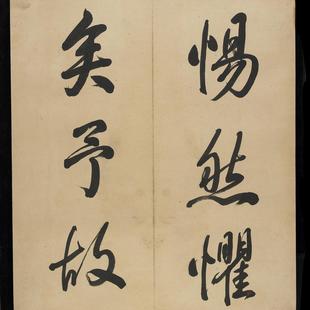 惕然懼
矣予故